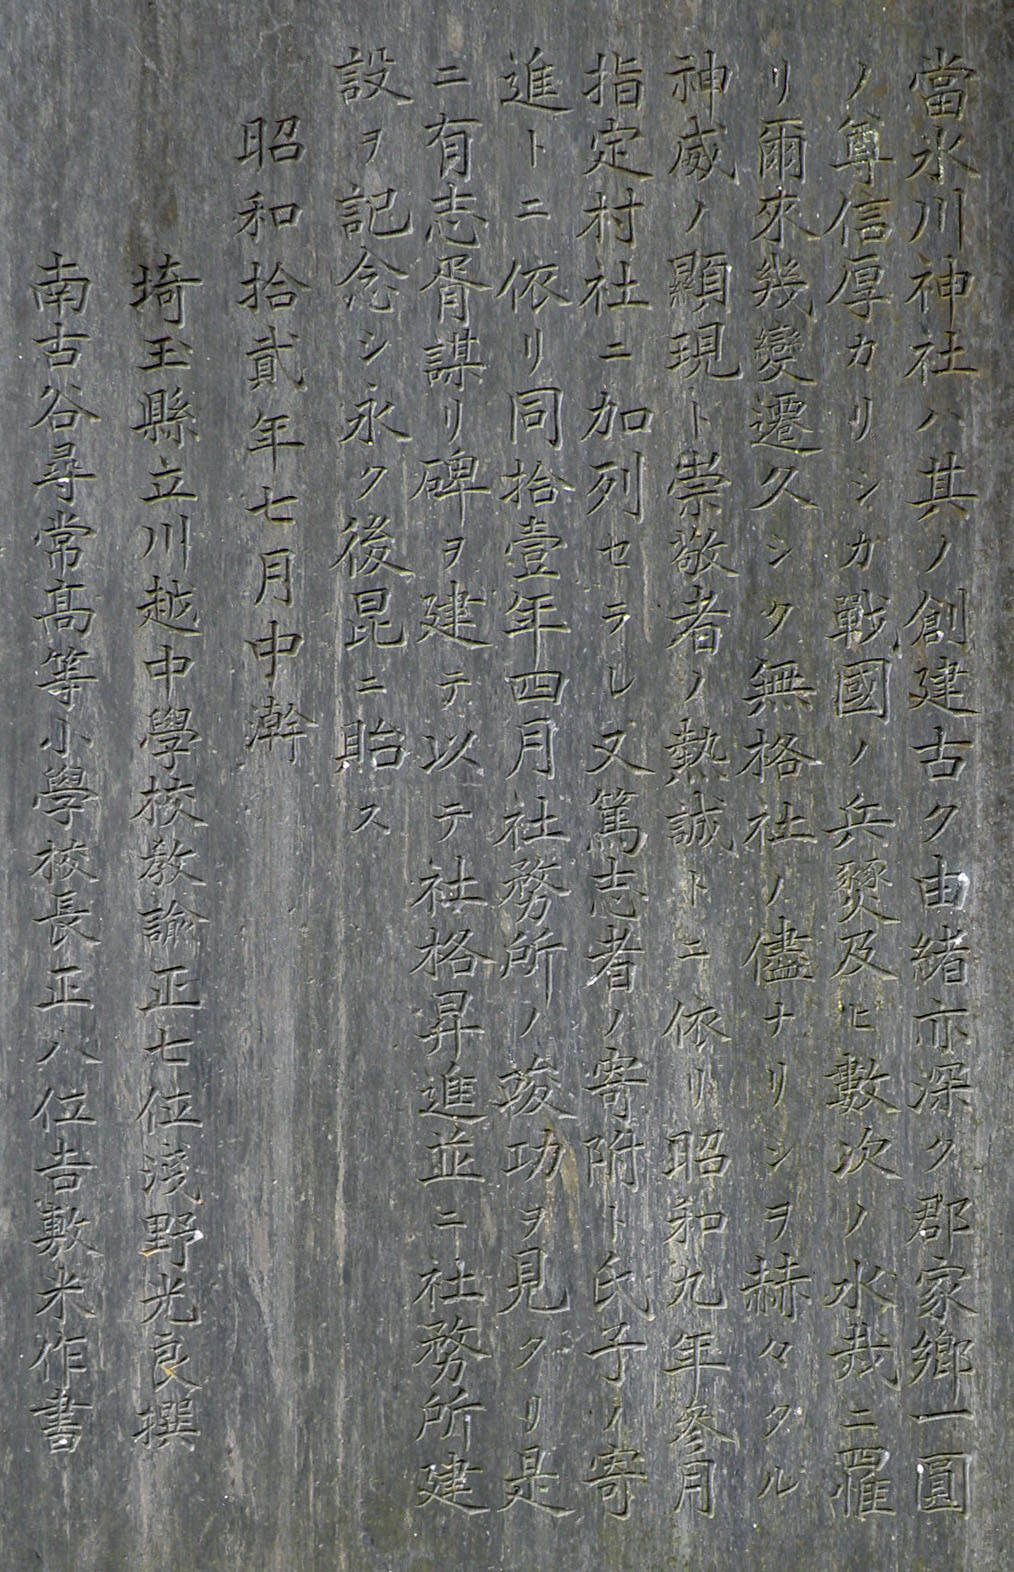 當氷川神社ハ其ノ創建古ク由緒亦深ク郡家鄉一圓
ノ尊信厚カリシカ戰國ノ兵燹及ヒ數次ノ水烖ニ罹
リ爾來幾變遷久シク無格社ノ儘ナリシヲ赫々タル
神威ノ顯現ト崇敬者ノ熱誠トニ依リ昭和九年參月
指定村社ニ加列セラレ又篤志者ノ寄附ト氏子ノ寄
進トニ依リ同拾壹年四月社務所ノ竣功ヲ見タリ是
ニ有志胥謀リ碑ヲ建テ以テ社格昇進並ニ社務所建
設ヲ記念シ永ク後昆ニ貽ス
昭和拾貳年七月中澣
埼玉縣立川越中學校教諭正七位淺野光良撰
南古谷尋常髙等小學校長正八位吿敷米作書